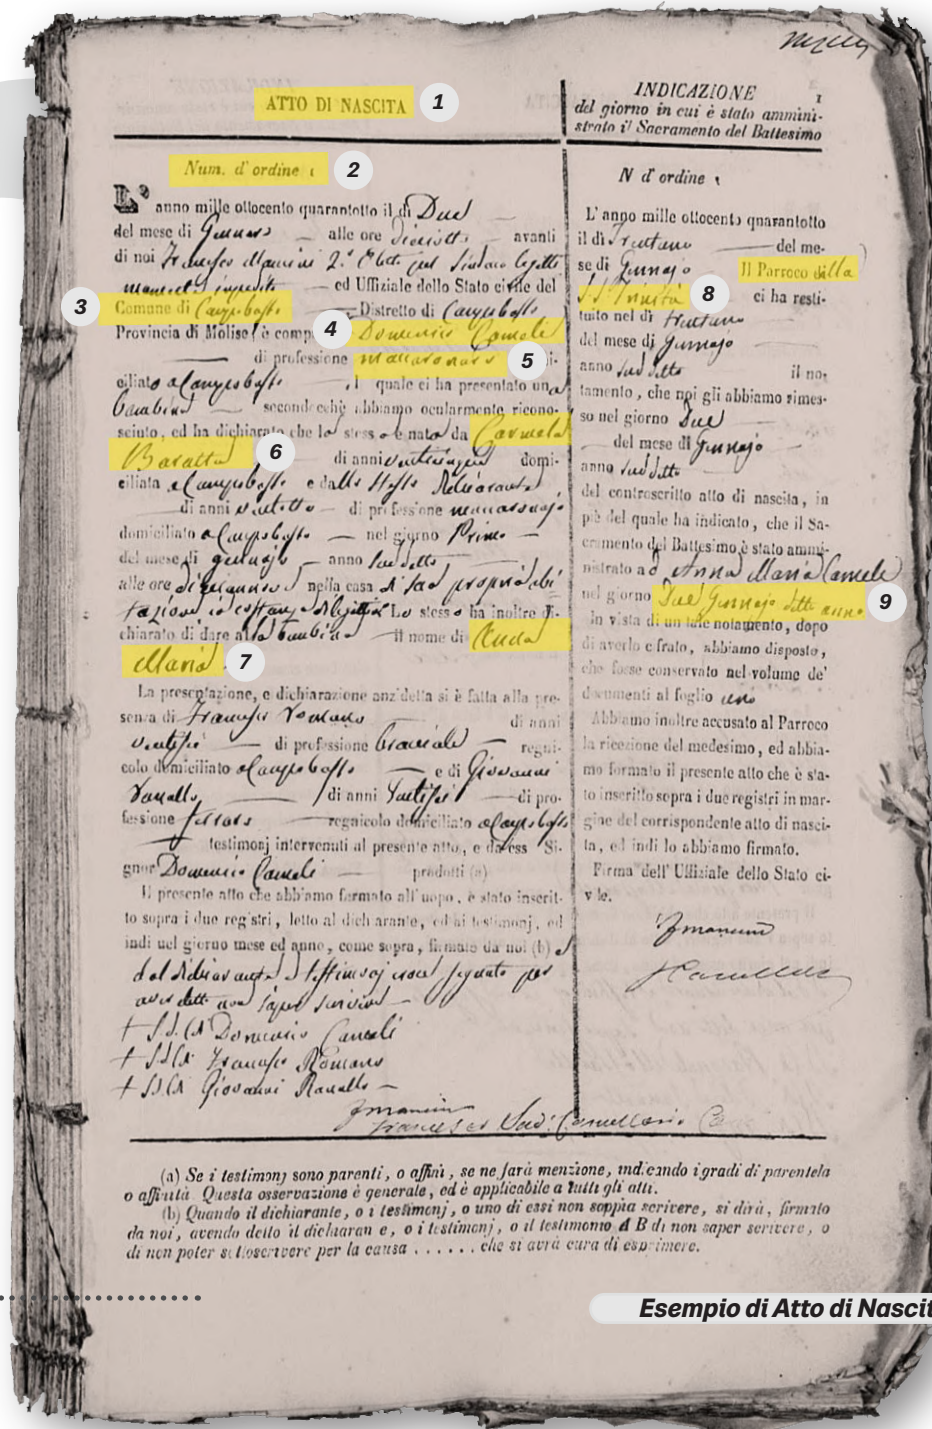 ATTO DI NASCITA 1
Num. d' ordine 1 2
L' anno mille ottocento quarantotto il di Due
del mese di Gennaro alle ore diciotto avanti
di noi Francesco Mancini 2.° Eletto pel Sindaco
ed Uffiziale dello Stato civile del
3 Comune di Campobasso Distretto di Campobasso
Provincia di Molise, è comp 4 Domenico Cameli
di professione maccaronaro 5 i-
ciliato a Campobasso , l quale ci ha presentato una
bambina secondocchè abbiamo ocularmente ricono-
sciuto, ed ha dichiarato che lo stess o è nata da Carmela
Baratta 6 di anni venticinque domi-
ciliata a Campobasso e dallo stesso Dichiarante
di anni ventotto di professione maccaronajo
domiciliato a Campobasso nel giorno Primo
del mese di gennajo anno suddetto
alle ore nella casa di sua propria abi
tazione Lo stesso ha inoltre di-
chiarato di dare alla bambina il nome di Anna
Maria 7
La presentazione, e dichiarazione anzidetta si è fatta alla pre-
senza di Francesco Romano di anni
ventisei di professione bracciale regni-
colo domiciliato a Campobasso e di Giovanni
Ranallo di anni Ventisei di pro-
fessione ferraro regnicolo domiciliato a Campobasso
testimonj intervenuti al presente atto, e da ess Si-
gnor Domenico Cameli prodotti (a)
Il presente atto che abbiamo formato all'uopo, è stato inscrit-
to sopra i due registri, letto al dichiarante, ed ai testimonj, ed
indi nel giorno mese ed anno, come sopra, firmato da noi (b) e
dal dichiarante e testimonj croce segnato per
aver detto non saper scrivere
+ S.d.C. di Domenico Cameli
+ S.d.C. di Francesco Romano
+ S.d.C. di Giovanni Ranallo
FMancini
INDICAZIONE 1
del giorno in cui è stato ammini-
strato il Sacramento del Battesimo
N d' ordine 1
L' anno mille ottocento quarantotto
il dì Trentuno del me-
se di Gennajo Il Parroco della
SS. Trinità 8 ci ha resti-
tuito nel dì trentuno
del mese di Gennajo
anno suddetto il no-
tamento, che noi gli abbiamo rimes-
so nel giorno Due
del mese di Gennajo
anno suddetto
del controscritto atto di nascita, in
piè del quale ha indicato, che il Sa-
cramento del Battesimo è stato ammi-
nistrato ad Anna Maria Cameli
nel giorno Due Gennajo detto anno 9
In vista di un tale notamento, dopo
di averlo cifrato, abbiamo disposto,
che fosse conservato nel volume de'
documenti al foglio uno
Abbiamo inoltre accusato al Parroco
la ricezione del medesimo, ed abbia-
mo formato il presente atto che è sta-
to inscritto sopra i due registri in mar-
gine del corrispondente atto di nasci-
ta, ed indi lo abbiamo firmato.
Firma dell' Uffiziale dello Stato ci-
vile.
FMancini
(a) Se i testimonj sono parenti, o affini, se ne farà menzione, indicando i gradi di parentela
o affinità. Questa osservazione è generale, ed è applicabile a tutti gli atti.
(b) Quando il dichiarante, o i testimonj, o uno di essi non sappia scrivere, si dirà, firmato
da noi, avendo detto il dichiaran e, o i testimonj, o il testimonio A B di non saper scrivere, o
di non poter sottoscrivere per la causa . . . . . . che si avrà cura di esprimere.
Esempio di Atto di Nascit